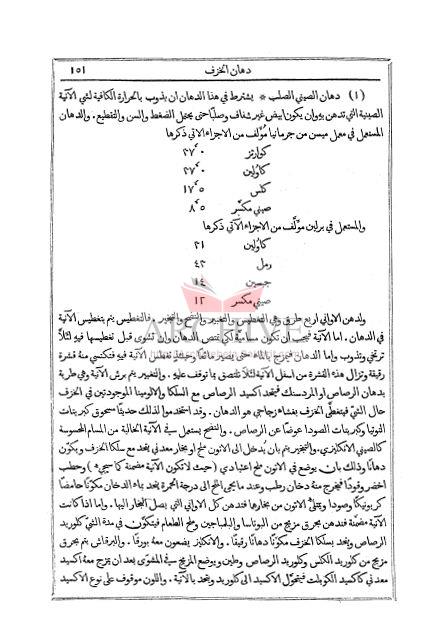 دهان الخزف ١٥١
(١) دهان الصيني الصلب * يشترط في هذا الدهان ان يذوب بالحرارة الكافية لشي الآنية
الصينية التي تدهن به وان يكون ابيض غير شفاف وصلبًا حتى يحتمل الضغط والسن والتقطيع. والدهان
المستعمل في معمل ميسن من جرمانيا مؤلف من الاجزاء الآتي ذكرها
كوارتز ٣٧٬٠
كاولين ٣٧٬٠
كلس ١٧٬٥
صيني مكسّر ٨٬٥
والمستعمل في برلين مؤلّف من الاجزاء الآتي ذكرها
كاولين ٣١
رمل ٤٣
جبسين ١٤
صيني مكسر ١٢
ولدهن الاواني اربع طرق وهي التغطيس والتخبير والنضح والتبخير. فالتغطيس يتم بتغطيس الآنية
في الدهان. اما الآنية فيجب ان تكون مسامية لكي تمتص الدهان وان تشوى قبل تغطيسها فيه لئلّا
ترتخي وتذوب واما الدهان فيمزج بالماء حتى يصير مائعًا وحينئذٍ تغطس الآنية فيه فتكتسي منه قشرة
رقيقة وتزال هذه القشرة من اسفل الآنية لئلّا تلتصق بما توقف عليه. والتخبير يتم برش الآنية وهي طرية
بدهان الرصاص او المردسنك فيتحد اكسيد الرصاص مع السلكا والالومينا الموجودتين في الخزف
حال الشيّ فيتغطى الخزف بغشاء زجاجي هو الدهان. وقد استخدموا لذلك حديثًا مسحوق كبريتات
التوتيا وكبريتات الصودا عوضًا عن الرصاص. والنضح يستعمل في الآنية الخالية من المسام المحسوسة
كالصيني الانكليزي. والتبخير يتم بان يُدخل الى الاتون ملح او بخار معدني يتحد مع سلكا الخزف ويكوّن
دهانًا وذلك بان يوضع في الاتون ملح اعتيادي (حيث لا تكون الآنية مضمنة كما سيجيء) وحطب
اخضر وقودًا فيخرج منه دخان رطب وعند ما يحمى الملح الى درجة الحمرة يتحد بماء الدخان مكوّنًا حامضًا
كربونيكًا وصودا ويمتلئ الاتون من بخارها فتدهن كل الاواني التي يصل البخار اليها. واما اذا كانت
الآنية مضمنة فتدهن بحرق مزيج من البوتاسا والبلمباجين وملح الطعام فيتكوّن في مدة الشيّ كلوريد
الرصاص ويتحد بسلكا الخزف مكوّنًا دهانًا رقيقًا. والانكليز يضعون معه بورقًا. والبرقاش يتم بحرق
مزيج من كلوريد الكلس وكلوريد الرصاص وطين ويوضع المزيج في المشوى بعد ان يمزج معه اكسيد
معدني كاكسيد الكوبلت فيتحوّل الاكسيد الى كلوريد ويتحد بالآنية. واللون موقوف على نوع الاكسيد